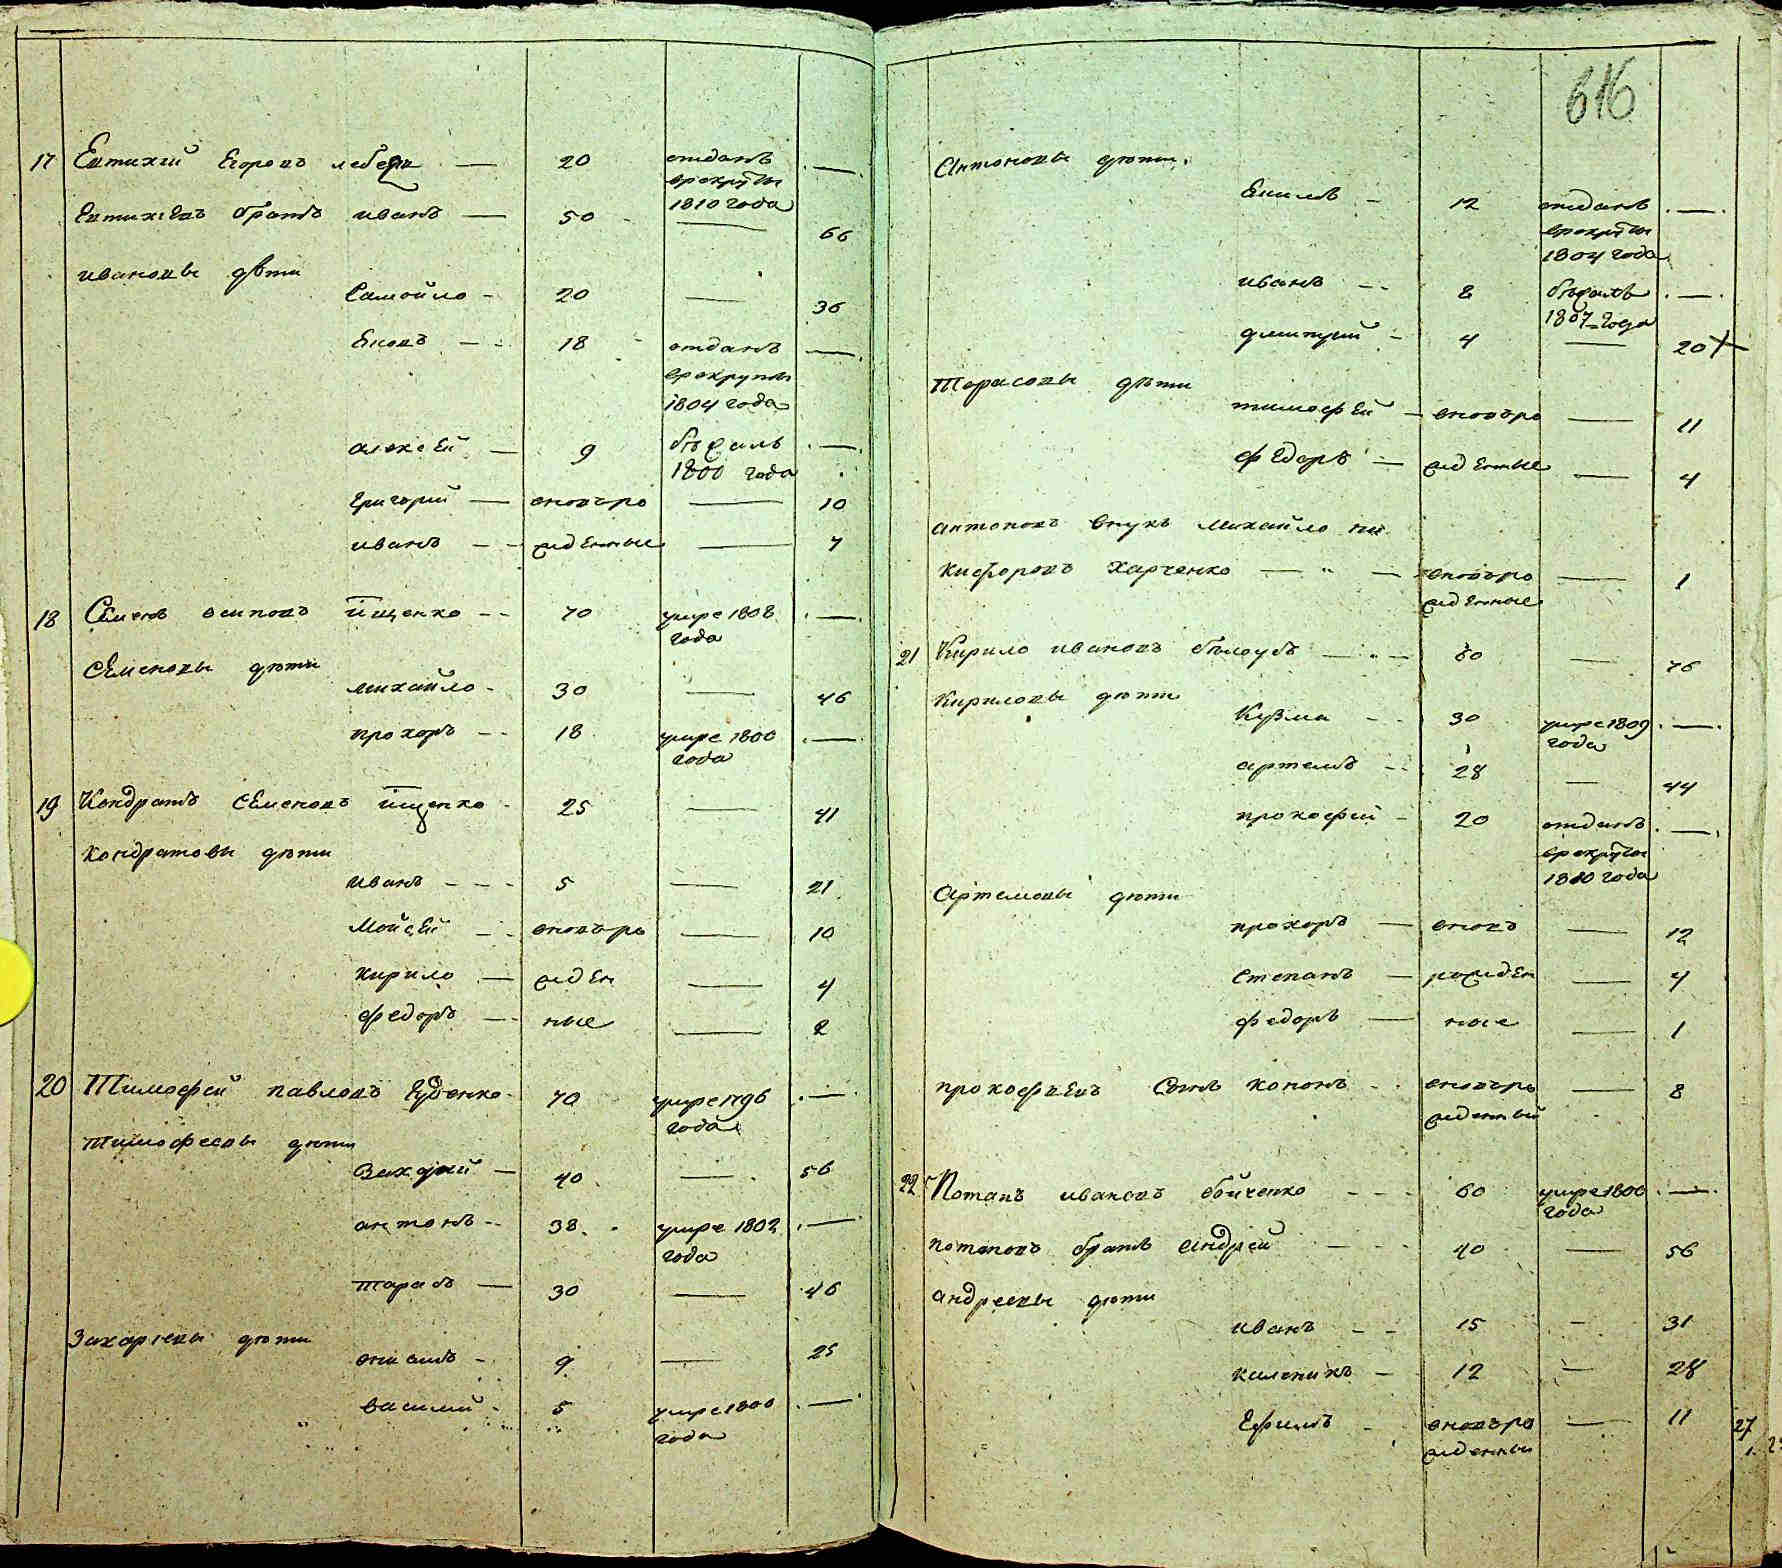 17 Евтихий Егоровъ лебедь — 20 отданъ —
врекруты
1810 года
Евтихіевъ братъ иванъ — 50 — 66
ивановы дѣти
Самойло - 20 — 36
Яковъ - - 18 отданъ —
врекруты
1804 года
алексѣй — 9 бѣжалъ —
1800 года
григорий — вновьро — 10
иванъ - - жденные — 7
18 Семенъ осиповъ їщенко - - 70 умре 1808 —
года
Семеновы дѣти
михайло - 30 — 46
прохоръ - - 18 умре 1800 —
года
19 Кондратъ Семеновъ їщенко - 25 — 41
кондратовы дѣти
иванъ - - - 5 — 21
Мойсѣй - - вновьро — 10
кирило — жден — 4
федоръ - - ные — 2
20 Тимофей павловъ 70 умре 1796 —
года
тимофеевы дѣти
Захарий — 40 — 56
антонъ - - 38 умре 1802 —
года
тарасъ — 30 — 46
Захаріевы дѣти
9 — 25
василий - 5 умре 1800 —
года
616
Антоновы дѣти
12 отданъ —
врекруты
1804 года
иванъ - - 8 бѣжалъ —
1807 года
дмитрий - 4 — 20
Тарасовы дѣти
тимофѣй — вновьро — 11
федоръ — жденные — 4
антоновъ внукъ михайло ни
кифоровъ Харченко — — вновьро — 1
жденные
21 Кирило ивановъ бѣлоусъ — - — 60 — 76
Кириловы дѣти
Кузма - - 30 умре 1809 —
года
артемъ - - 28 — 44
прокофий - 20 отданъ —
врекруты
1810 года
Артемовы дѣти
прохоръ — вновь — 12
степанъ — рожден — 4
федоръ — ные — 1
прокофиевъ Сынъ кононъ - - вновьро — 8
жденный
22 Потапъ ивановъ бойченко - - - 60 умре 1800 —
года
потаповъ братъ андрей - - - 40 — 56
андреевы дѣти
иванъ - - 15 - 31
каленикъ — 12 — 28
Ефимъ - вновьро — 11
жденны
27